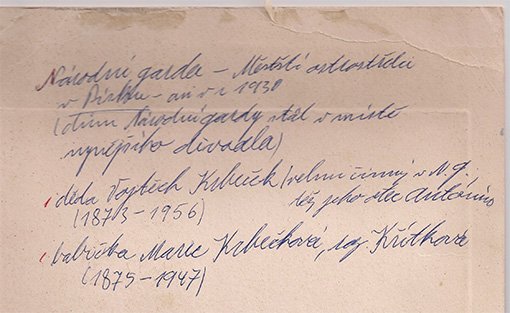 Národní garda – Městští ostrostřelci
v Písku – asi v r. 1930
(dům Národní gardy stál v místě
nynějšího divadla)
děda Vojtěch Krbeček (velmi činný v N. g.
(1873–1956) též jeho otec Antonín
babička Marie Krbečková, roz. Křítková
(1875–1947)